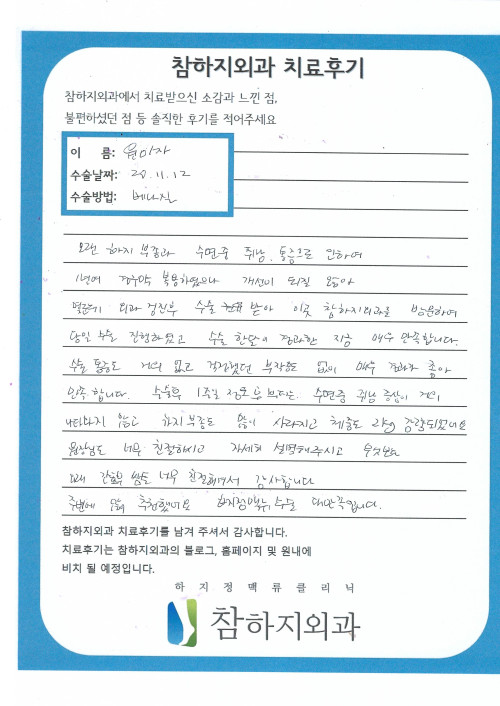 참하지외과 치료후기
참하지외과에서 치료받으신 소감과 느낀 점,
불편하셨던 점 등 솔직한 후기를 적어주세요
이 름: 원미자
수술날짜: 20.11.12
수술방법: 베나실
오랜 하지 부종과 수면중 쥐남, 통증으로 인하여
1년여 경구약 복용하였으나 개선이 되질 않아
외과 검진후 수술 받아 이곳 참하지외과를 방문하여
당일 수술 진행하였고 수술 한달이 경과한 지금 매우 만족합니다.
수술 통증도 거의 없고 걱정했던 부작용도 없이 매우 경과가 좋아
만족 합니다. 수술후 1주일 정도 후부터는 수면중 쥐남 증상이 거의
나타나지 않고 하지부종도 많이 사라지고 체중도 2kg 감량되었네요
원장님도 너무 친절하시고 자세히 설명해주시고
간호부 쌤들 너무 친절해서 감사합니다
주변에 많이 추천했네요 하지정맥류 수술 대만족입니다.
참하지외과 치료후기를 남겨 주셔서 감사합니다.
치료후기는 참하지외과의 블로그, 홈페이지 및 원내에
비치 될 예정입니다.
하 지 정 맥 류 클 리 닉
참하지외과